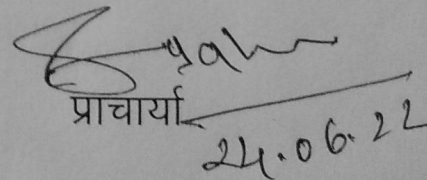 प्राचार्या
24.06.22